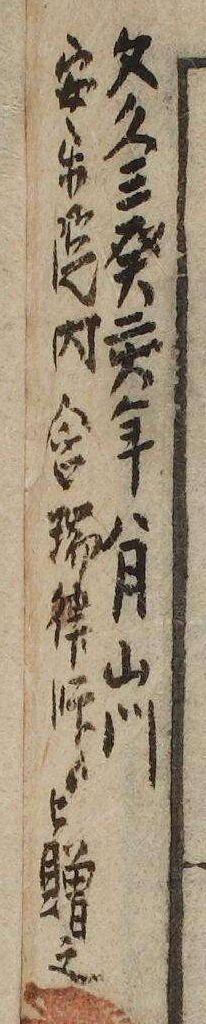 文久三癸亥年八月山川
安楽院内舎瑞律師ゟ贈之